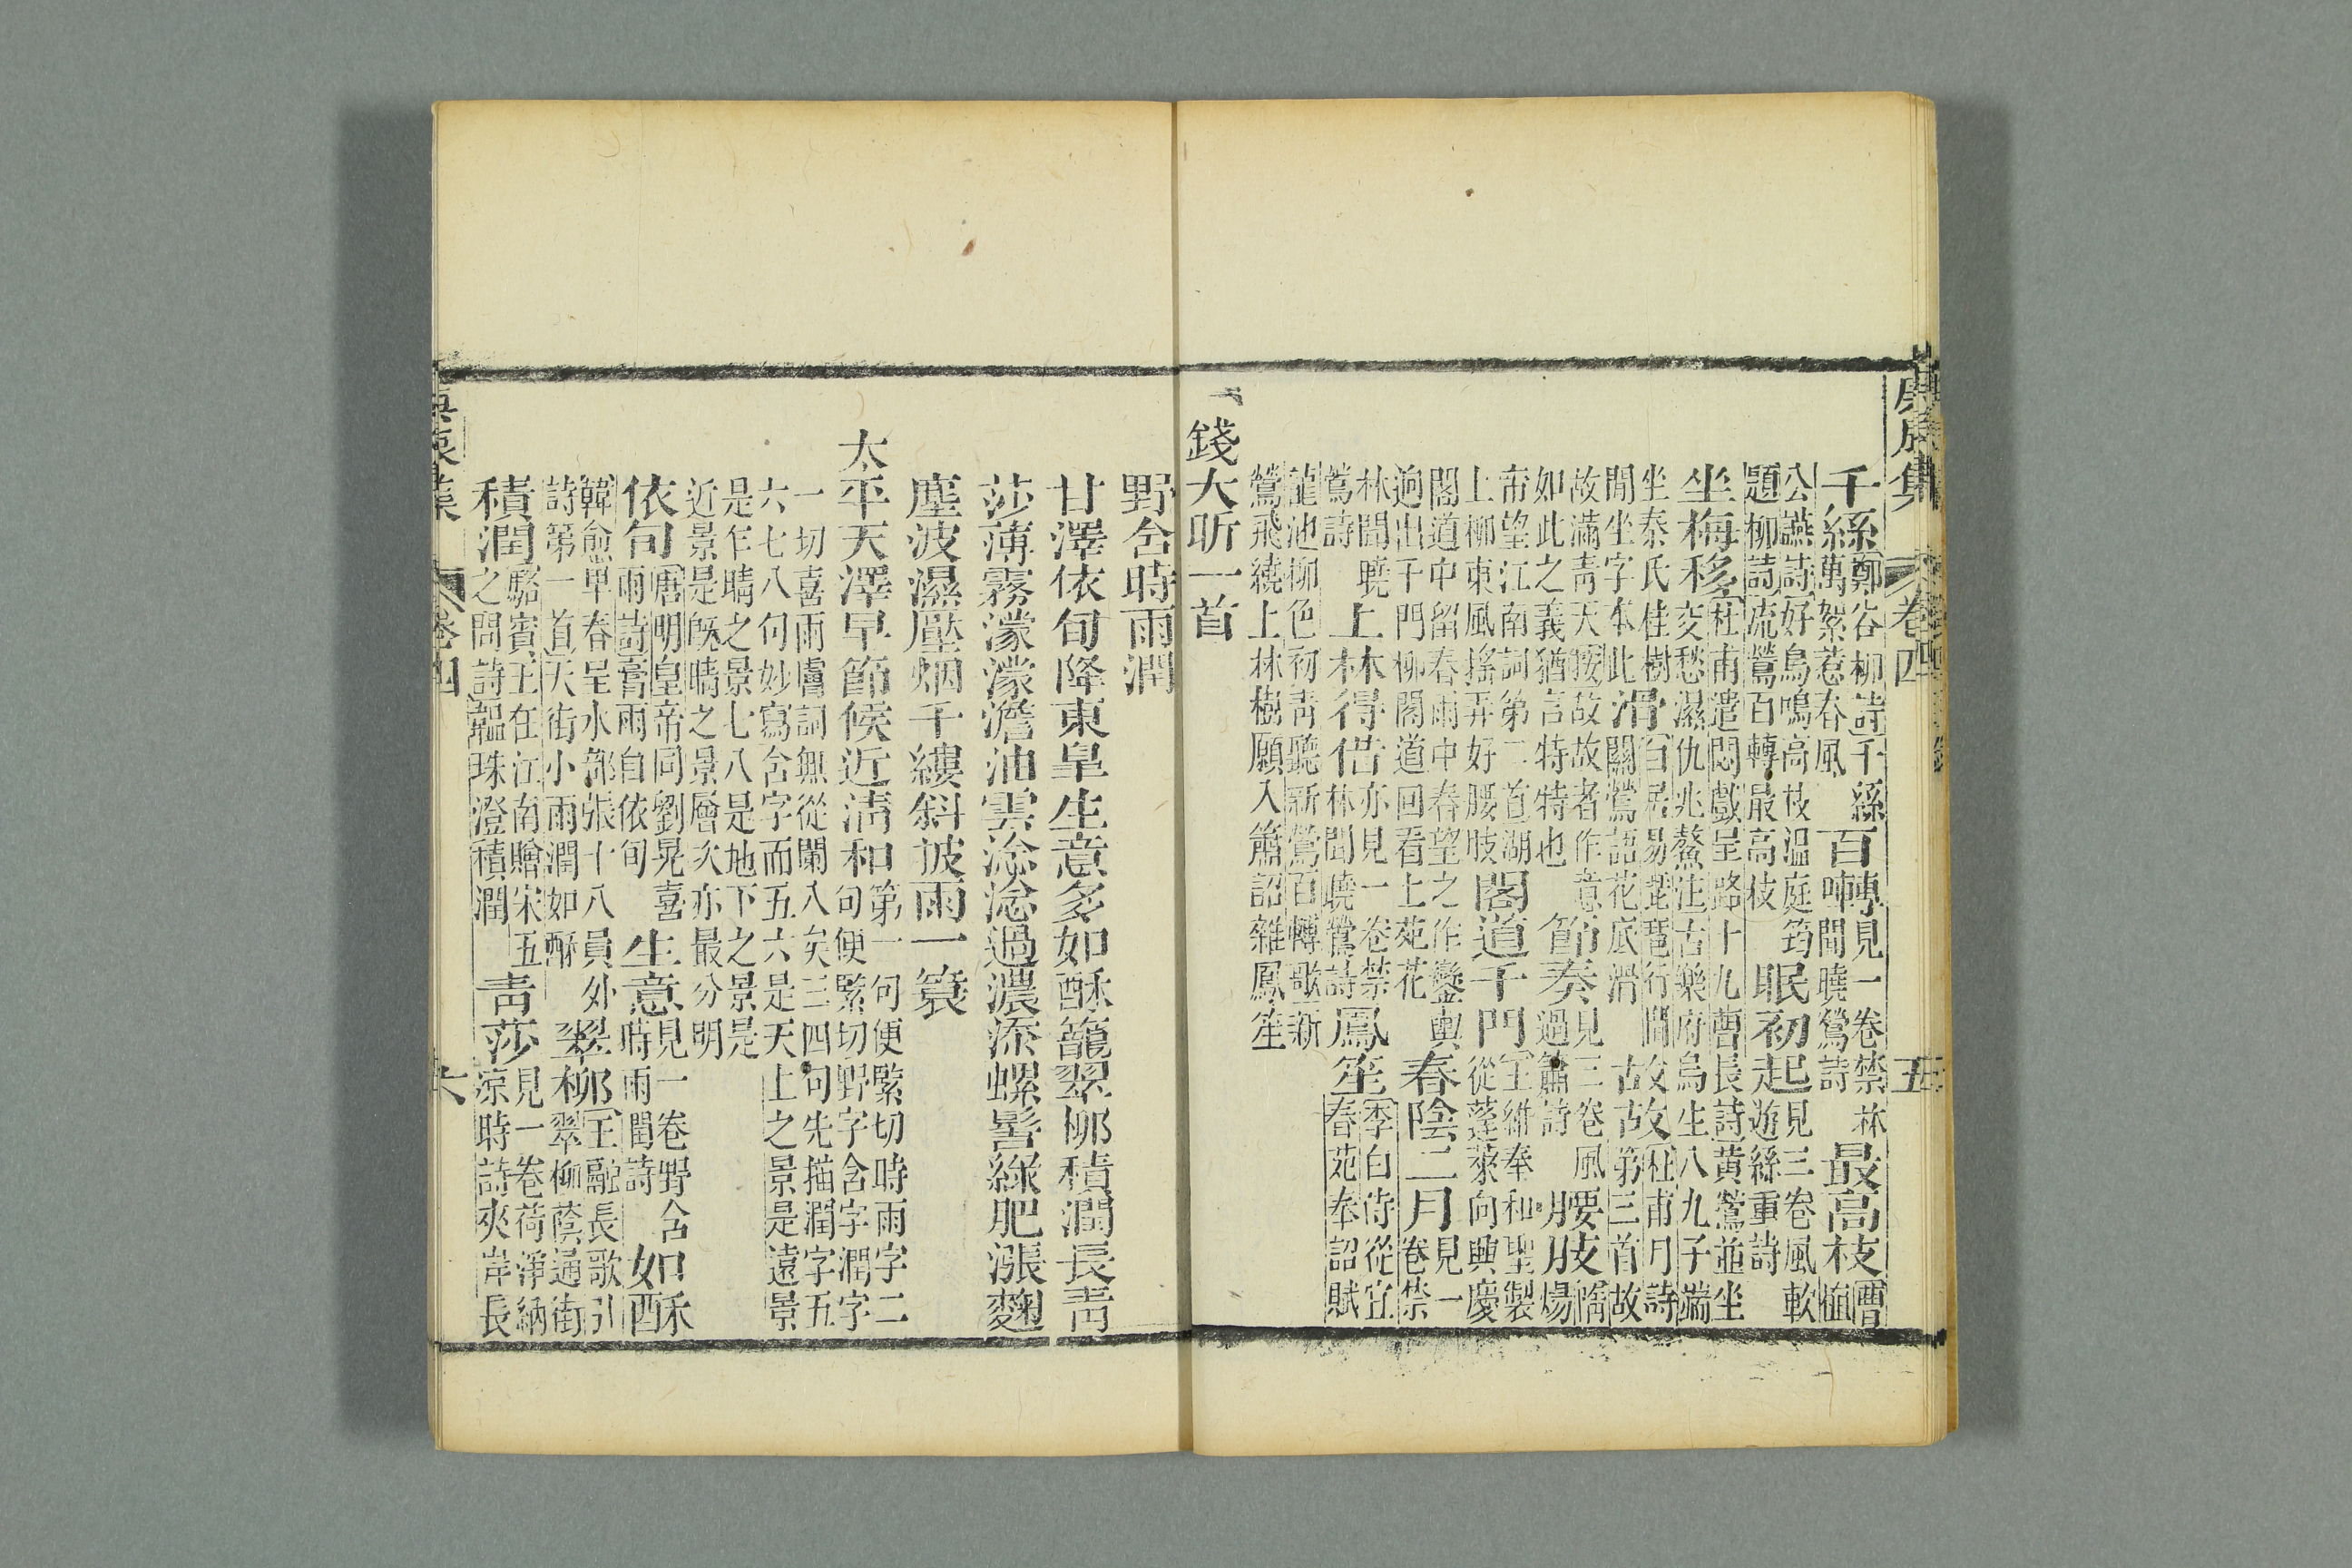 庚辰集 卷四 五
千絲鄭谷柳詩千絲萬絮惹春風百囀見一卷禁林聞曉鶯詩最高枝曹植
公讌詩好鳥鳴高枝溫庭筠題柳詩流鶯百轉最高枝眠初起見三卷風軟遊絲重詩
坐梅移杜甫遣悶戲呈路十九曹長詩黃鸝並坐交愁濕仇兆鰲注古樂府烏生八九子端
坐秦氏桂樹間坐字本此滑白居易琵琶行間關鶯語花底滑故故杜甫月詩故
故滿青天按故故者作意如此之義猶言特特也節奏見三卷風過簫詩腰肢隋煬
帝望江南詞第二首湖上柳東風搖弄好腰肢閣道千門王維奉和聖製從蓬萊向興慶
閣道中留春雨中春望之作鑾輿迥出千門柳閣道回看上苑花春陰二月見一卷禁
林聞曉鶯詩上林得借亦見一卷禁林聞曉鶯詩鳳笙李白侍從宜春苑奉詔賦
龍池柳色初青聽新鶯百囀歌新鶯飛繞上林樹願入簫韶雜鳳笙
錢大昕一首
野含時雨潤
甘澤依旬降東皐生意多如酥籠翠柳積潤長青
莎薄霧濛濛澹油雲淰淰過濃添螺髻綠肥漲麴
塵波濕壓烟千縷斜披雨一簑
太平天澤早節候近清和第一句便緊切時雨字二句便緊切野字含字潤字
一切喜雨膚詞無從闌入矣三四句先描潤字五六七八句妙寫含字而五六是天上之景是遠景
是乍晴之景七八是地下之景是近景是旣晴之景層次亦最分明
依旬唐明皇帝同劉晃喜雨詩膏雨自依旬生意見一卷野含時雨潤詩如酥
韓愈早春呈水部張十八員外詩第一首天街小雨潤如酥翠柳王融長歌引翠柳蔭通街
積潤駱賓王在江南贈宋五之問詩韞珠澄積潤青莎見一卷荷淨納涼時詩夾岸長
庚辰集 卷四 六